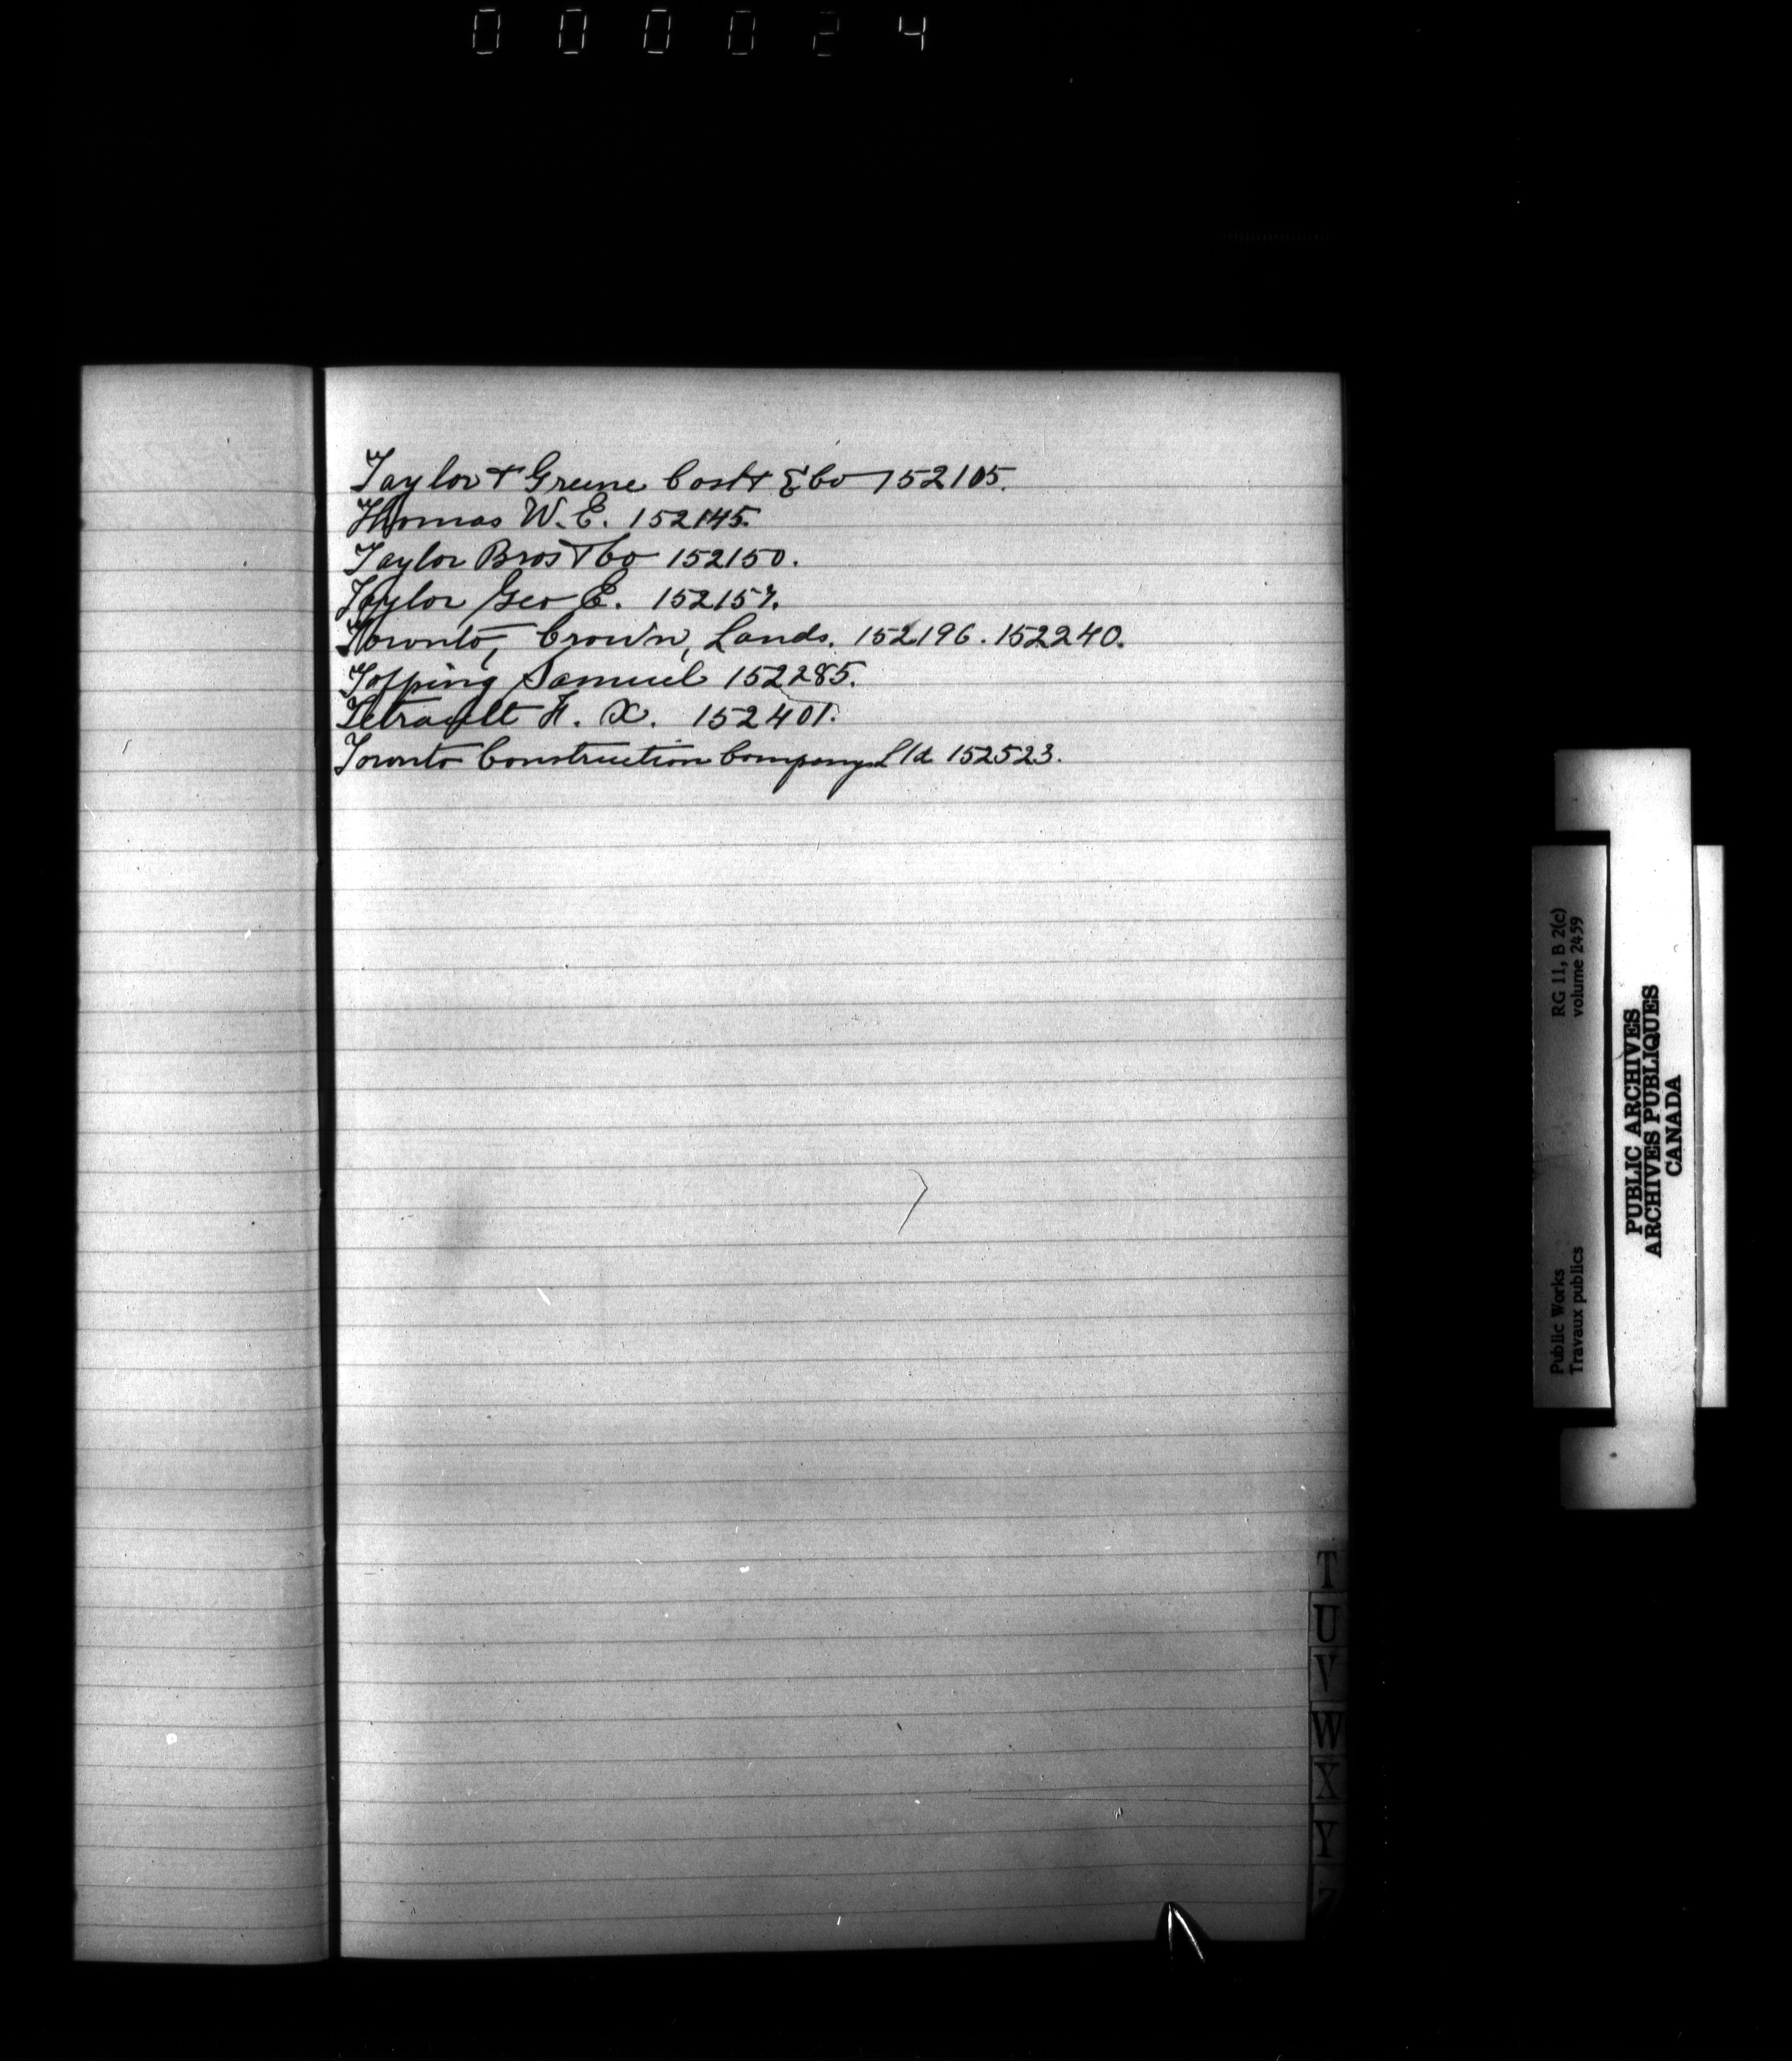 000024
Taylor & Greene Cost & Co 152105.
Thomas W. E. 152145.
Taylor Bros & Co 152150.
Taylor Geo E. 152157.
Toronto, Crown, Lands. 152196. 152240.
Topping Samuel 152285.
Tetrault F. X. 152401.
Toronto Construction Company Ltd 152523.
T
U
V
W
X
Y
Z
Public Works
Travaux publics
RG 11, B 2(c)
volume 2459
PUBLIC ARCHIVES
ARCHIVES PUBLIQUES
CANADA